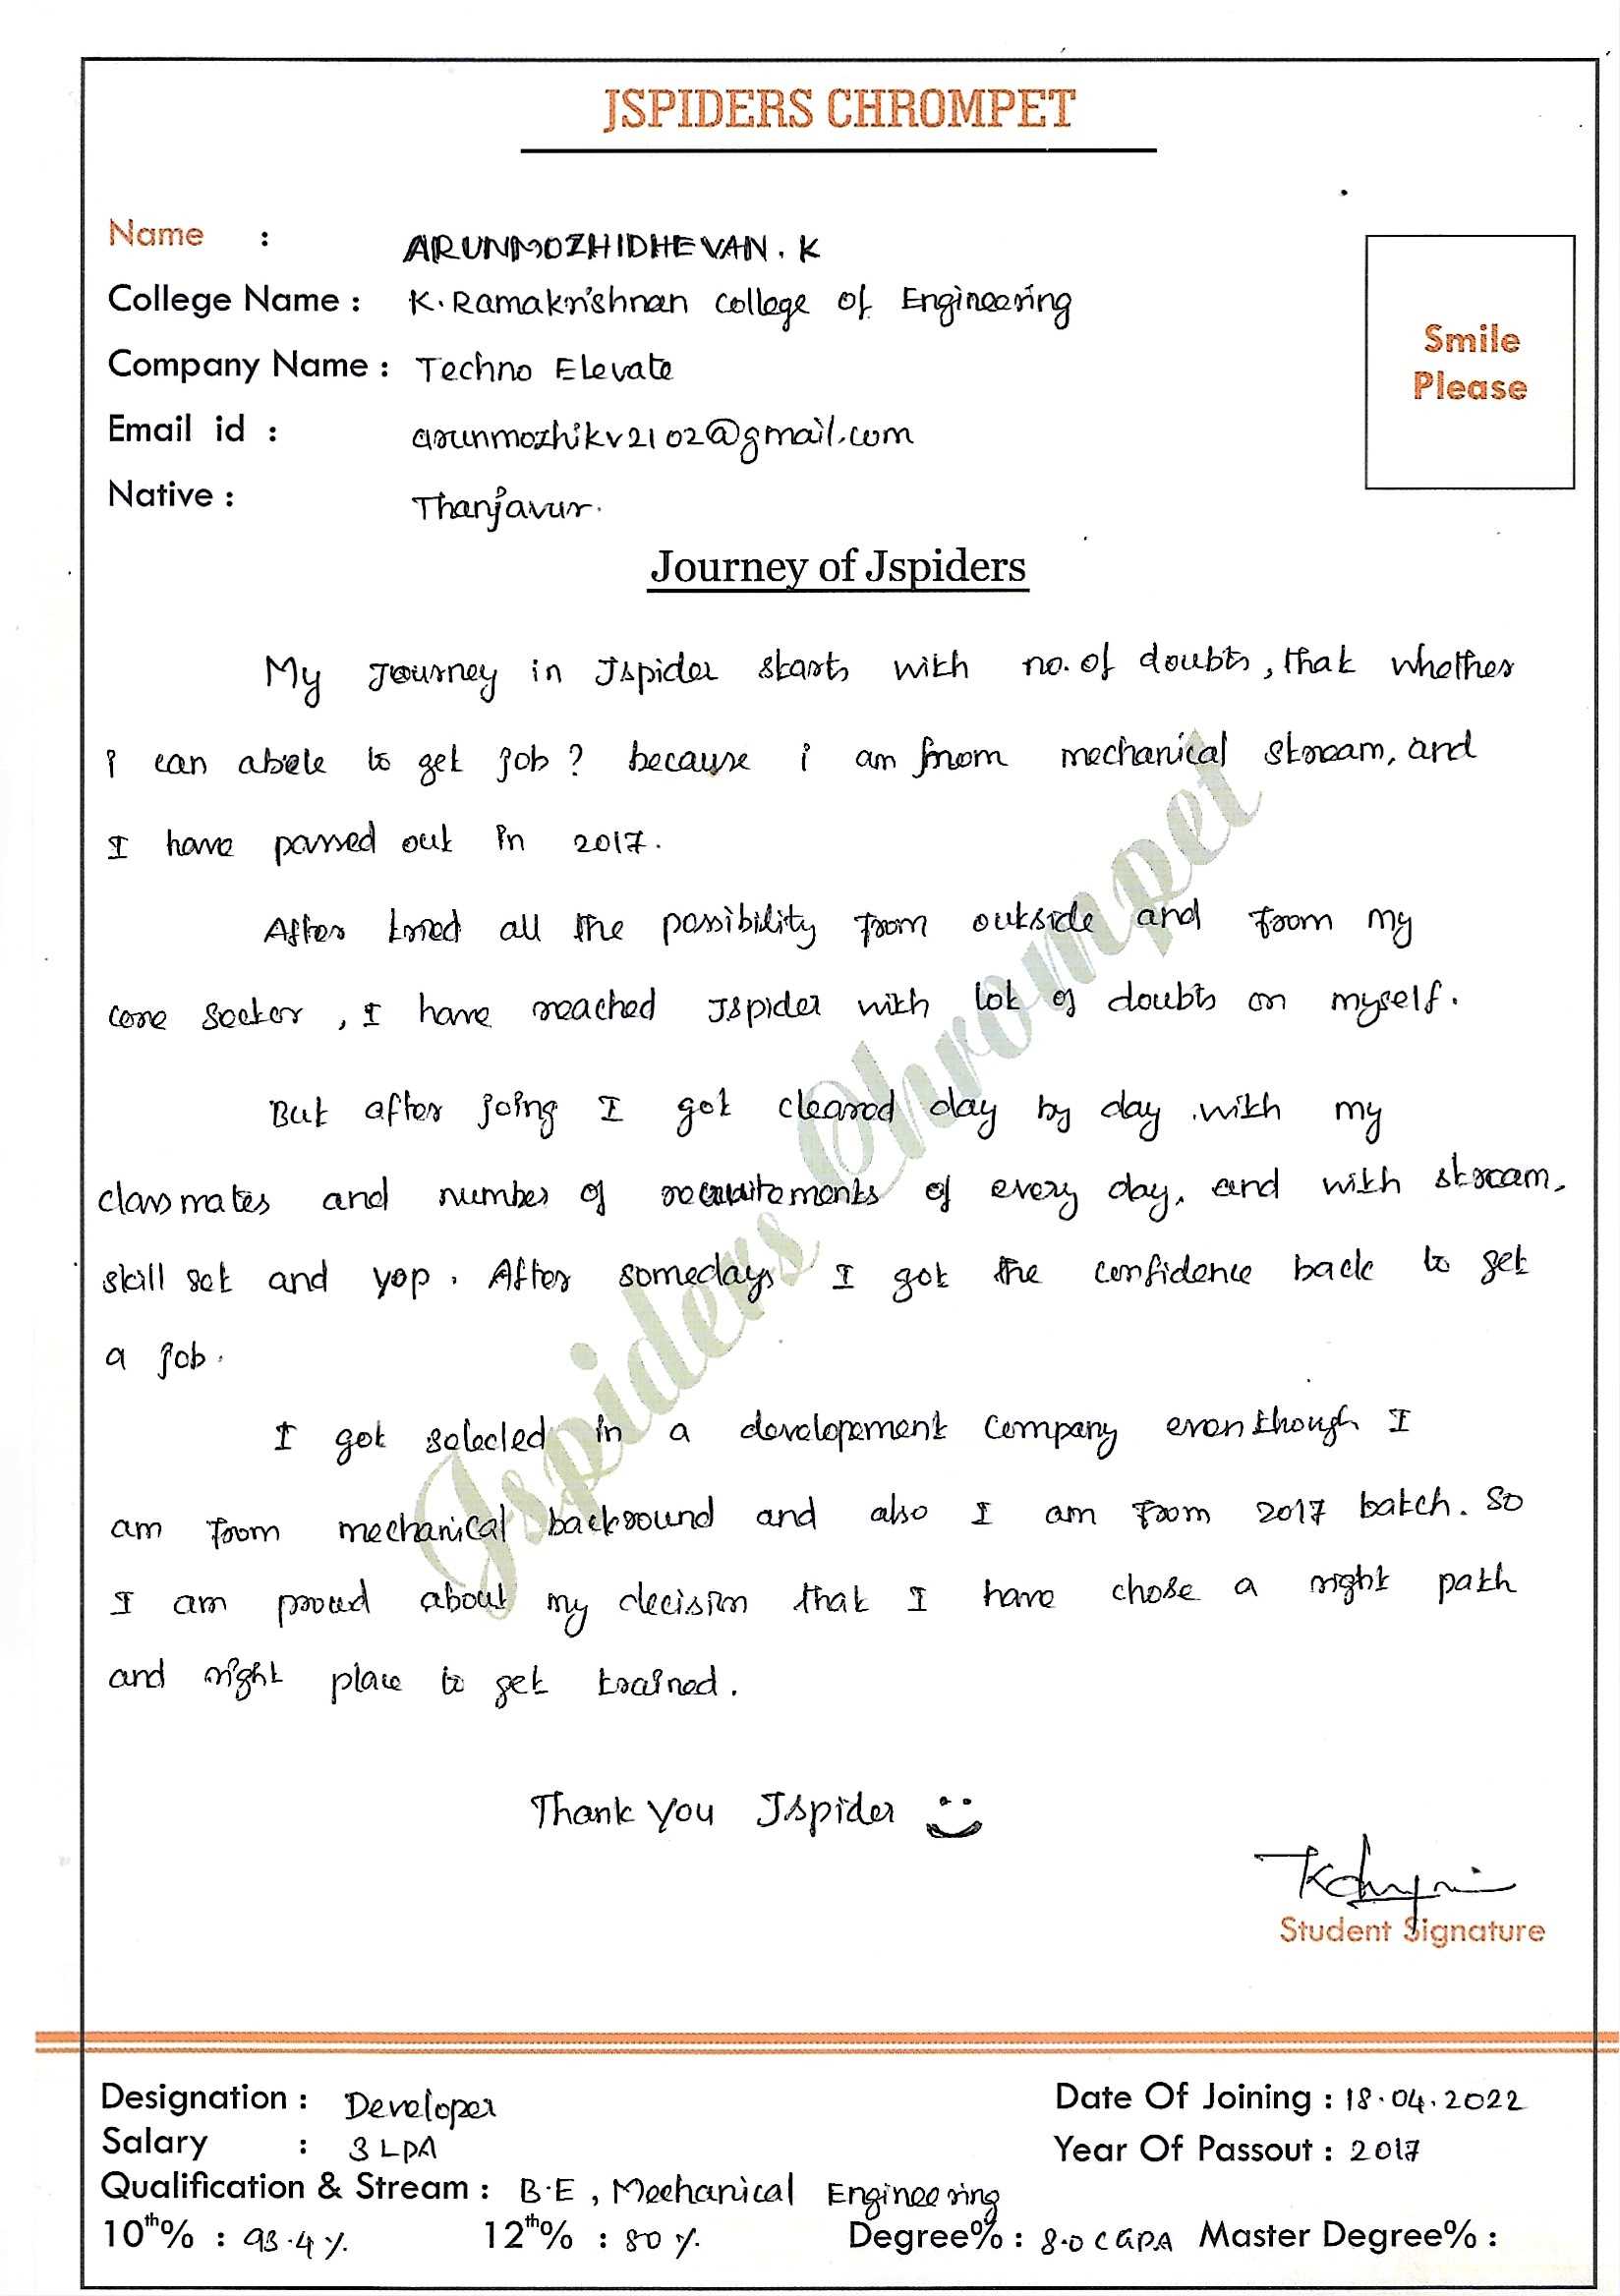 JSPIDERS CHROMPET
Name : ARUNMOZHIDHEVAN. K
College Name : K. Ramakrishnan college of Engineering
Company Name : Techno Elevate
Email id : arunmozhikv2102@gmail.com
Native : Thanjavur.
Smile
Please
Journey of Jspiders
My Journey in Jspider starts with no. of doubts, that whether
i can abele to get job? because i am from mechanical stream, and
I have passed out in 2017.
After tried all the possibility from outside and from my
core sector, I have reached Jspider with lot of doubts on myself.
But after joing I got cleared day by day with my
classmates and number of recruitements of every day, and with stream,
skill set and yop. After somedays I got the confidence back to get
a job.
I got selected in a developement company eventhough I
am from mechanical backround and also I am from 2017 batch. So
I am proud about my decision that I have chose a right path
and right place to get trained.
Thank You Jspider
Student Signature
Jspiders Chrompet
Designation : Developer Date Of Joining : 18.04.2022
Salary : 3 LPA Year Of Passout : 2017
Qualification & Stream : B.E, Mechanical Engineering
10th% : 93.4 % 12th% : 80 % Degree% : 8.0 CGPA Master Degree% :